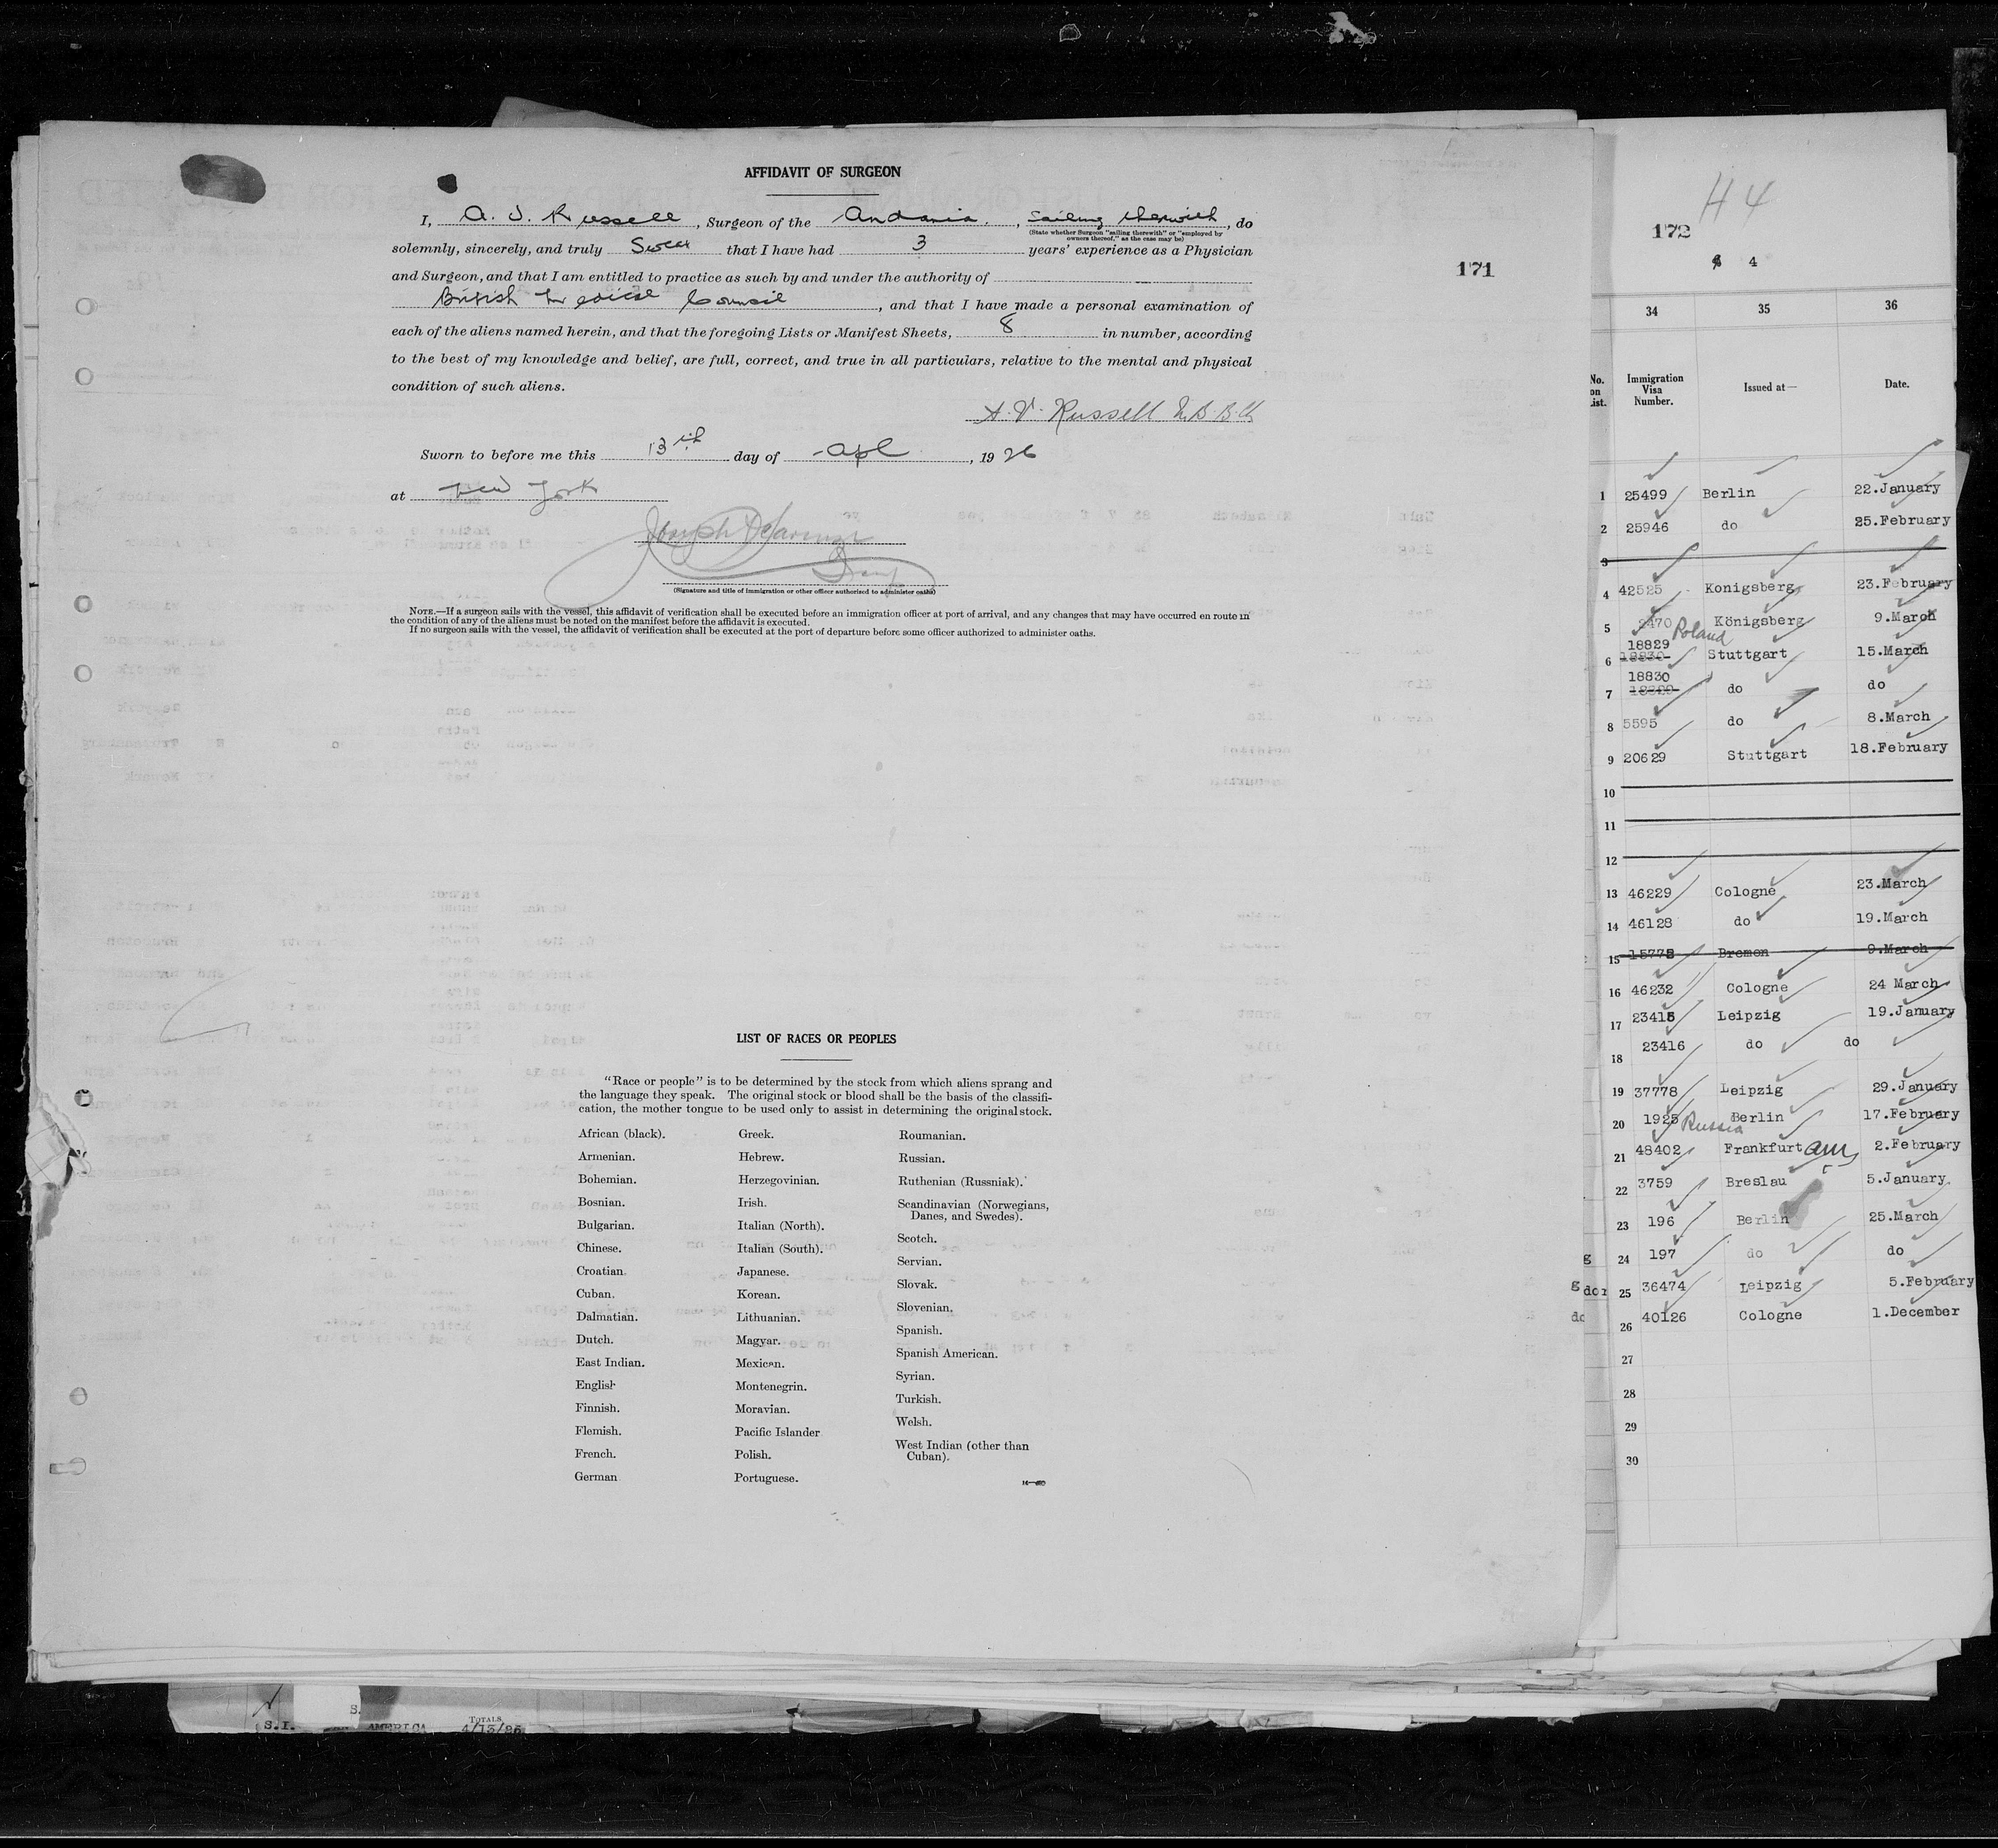 AFFIDAVIT OF SURGEON
I, A. J. Russell, Surgeon of the Andania, sailing therewith, do
(State whether Surgeon "sailing therewith" or "employed by
owners thereof," as the case may be)
solemnly, sincerely, and truly swear that I have had 3 years' experience as a Physician
and Surgeon, and that I am entitled to practice as such by and under the authority of
British Medical Council, and that I have made a personal examination of
each of the aliens named herein, and that the foregoing Lists or Manifest Sheets, 8 in number, according
to the best of my knowledge and belief, are full, correct, and true in all particulars, relative to the mental and physical
condition of such aliens.
A. V. Russell M.B. B.Ch
Sworn to before me this 13th day of Apl, 1926
at New York
Joseph
(Signature and title of immigration or other officer authorized to administer oaths)
NOTE.—If a surgeon sails with the vessel, this affidavit of verification shall be executed before an immigration officer at port of arrival, and any changes that may have occurred en route in
the condition of any of the aliens must be noted on the manifest before the affidavit is executed.
If no surgeon sails with the vessel, the affidavit of verification shall be executed at the port of departure before some officer authorized to administer oaths.
171
LIST OF RACES OR PEOPLES
"Race or people" is to be determined by the stock from which aliens sprang and
the language they speak. The original stock or blood shall be the basis of the classifi-
cation, the mother tongue to be used only to assist in determining the original stock.
African (black).
Armenian.
Bohemian.
Bosnian.
Bulgarian.
Chinese.
Croatian.
Cuban.
Dalmatian.
Dutch.
East Indian.
English
Finnish.
Flemish.
French.
German
Greek.
Hebrew.
Herzegovinian.
Irish.
Italian (North).
Italian (South).
Japanese.
Korean.
Lithuanian.
Magyar.
Mexican.
Montenegrin.
Moravian.
Pacific Islander
Polish.
Portuguese.
Roumanian.
Russian.
Ruthenian (Russniak).
Scandinavian (Norwegians,
Danes, and Swedes).
Scotch.
Servian.
Slovak.
Slovenian.
Spanish.
Spanish American.
Syrian.
Turkish.
Welsh.
West Indian (other than
Cuban).
H 4
172
4
34 35 36
No. on List. Immigration Visa Number. Issued at— Date.
1 25499 Berlin 22.January
2 25946 do 25.February
3
4 42525 Konigsberg 23.February
5 2470 Königsberg 9.March
Poland
18829
6 18830 Stuttgart 15.March
18830
7 do do
8 5595 do 8.March
9 20629 Stuttgart 18.February
10
11
12
13 46229 Cologne 23.March
14 46128 do 19.March
15 15778 Bremen 9.March
16 46232 Cologne 24 March
17 23415 Leipzig 19.January
18 23416 do do
19 37778 Leipzig 29.January
20 1925 Berlin 17.February
Russia
21 48402 Frankfurt am 2.February
22 3759 Breslau 5.January.
23 196 Berlin 25.March
g 24 197 do do
g dor 25 36474 Leipzig 5.February
do 26 40126 Cologne 1.December
27
28
29
30
S.
S.I. AMERICA TOTALS 4/13/26